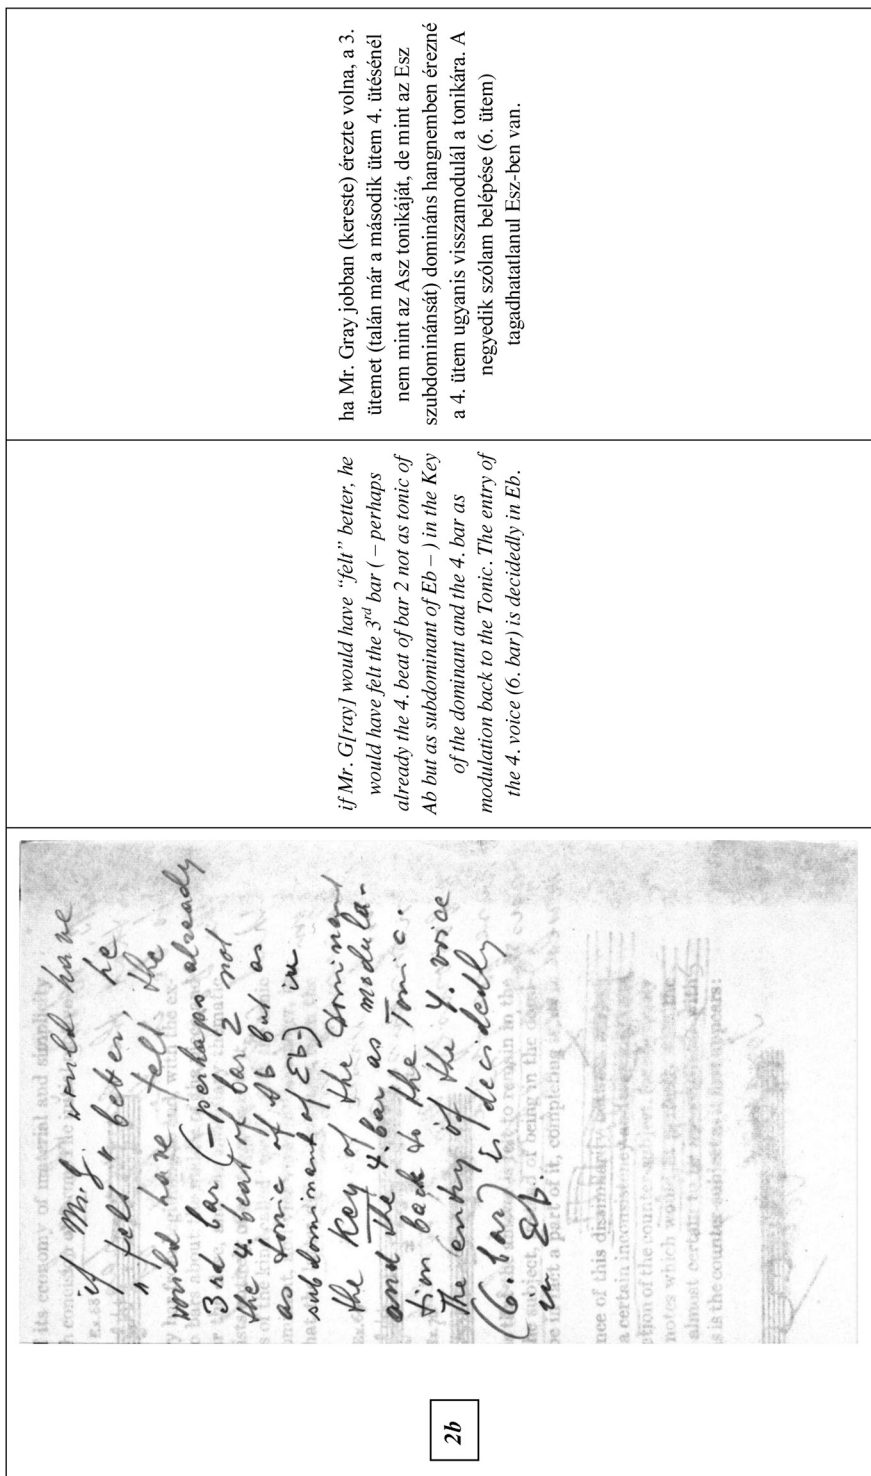 2b
its economy of material and simplicity
if Mr. G. would have
"felt" better, he
would have felt the
3rd bar (– perhaps already
the 4. beat of bar 2 not
as tonic of Ab but as
subdominent of Eb–) in
the Key of the dominant
and the 4. bar as modula-
tion back to the Tonic.
The entry of the 4. voice
(6. bar) is decidedly
in Eb.
be in but a part of it, completing
nce of this
a certain inconsistency
ction of the counter-subject
notes which would
almost certain to
s is the counter-subject as it first appears:
if Mr. G[ray] would have “felt” better, he
would have felt the 3rd bar ( – perhaps
already the 4. beat of bar 2 not as tonic of
Ab but as subdominant of Eb – ) in the Key
of the dominant and the 4. bar as
modulation back to the Tonic. The entry of
the 4. voice (6. bar) is decidedly in Eb.
ha Mr. Gray jobban (kereste) érezte volna, a 3.
ütemet (talán már a második ütem 4. ütésénél
nem mint az Asz tonikáját, de mint az Esz
szubdominánsát) domináns hangnemben érezné
a 4. ütem ugyanis visszamodulál a tonikára. A
negyedik szólam belépése (6. ütem)
tagadhatatlanul Esz-ben van.